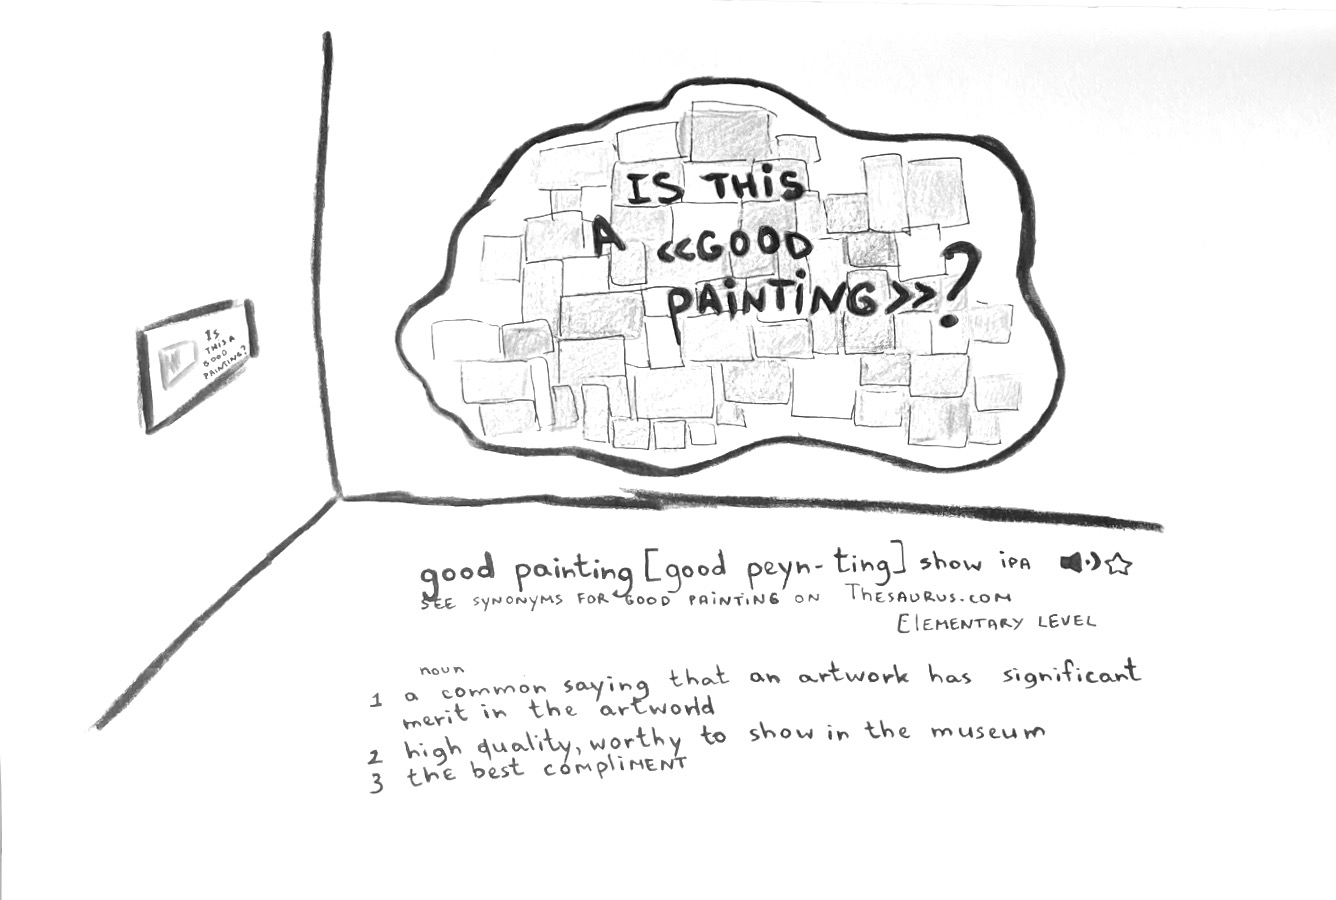 IS THIS
A «GOOD
PAINTING»?
IS
THIS A
GOOD
PAINTING?
good painting [good peyn-ting] show IPA
SEE SYNONYMS FOR GOOD PAINTING ON THESAURUS.COM
ELEMENTARY LEVEL
noun
1 a common saying that an artwork has significant
merit in the artworld
2 high quality, worthy to show in the museum
3 the best compliMENT